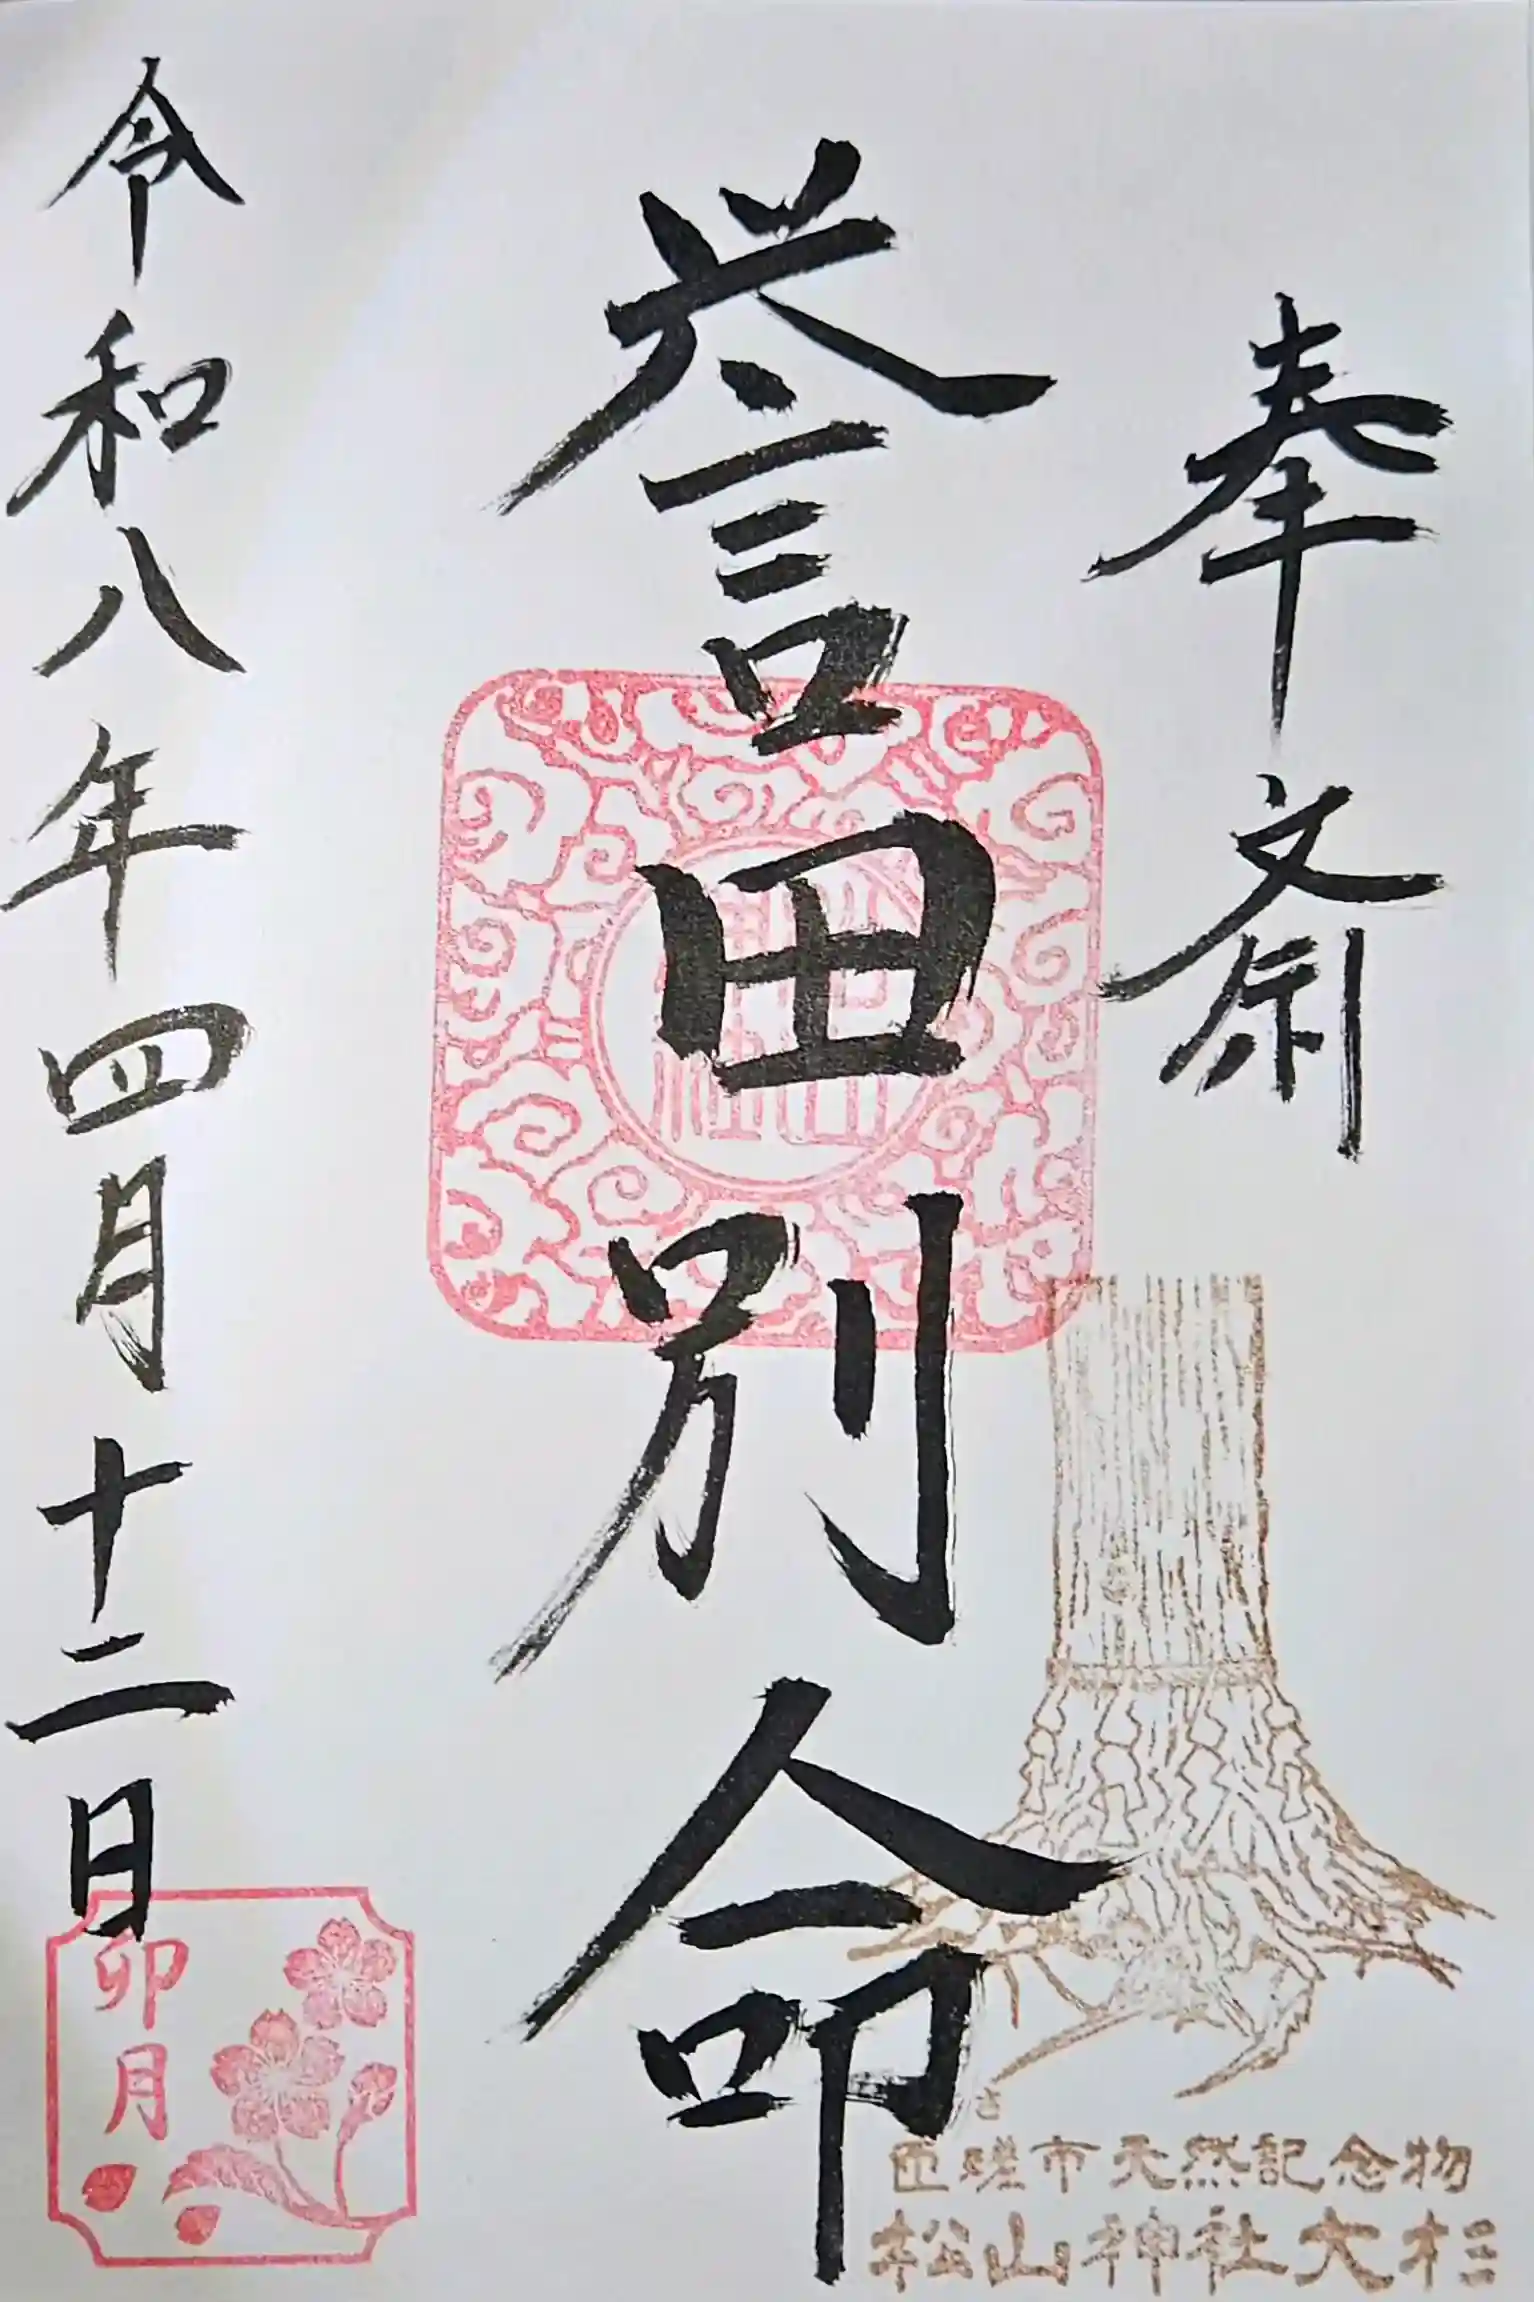 奉斎
誉田別命
令和八年四月十二日
卯月
匝瑳市天然記念物
松山神社大杉